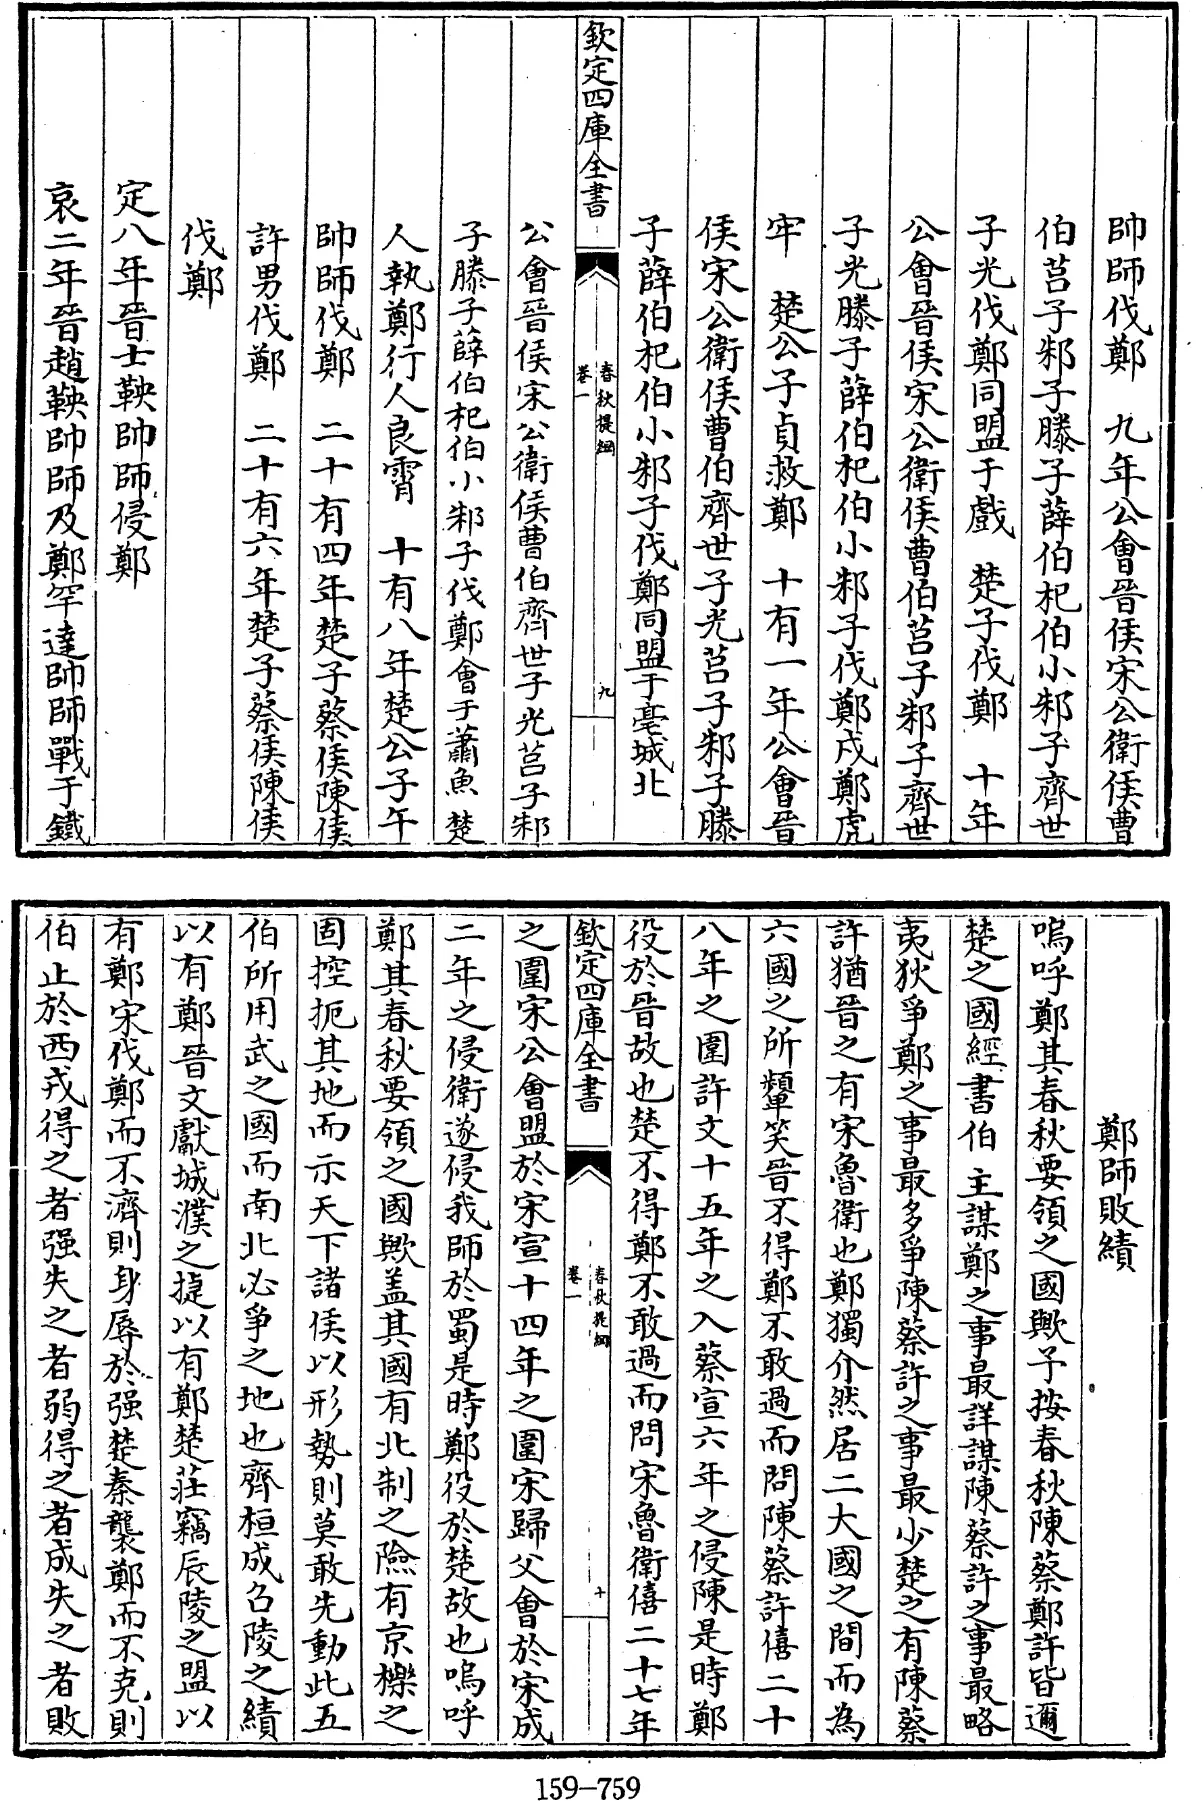 帥師伐鄭　九年公會晉侯宋公衛侯曹
伯莒子邾子滕子薛伯杞伯小邾子齊世
子光伐鄭同盟于戲　楚子伐鄭　十年
公會晉侯宋公衛侯曹伯莒子邾子齊世
子光滕子薛伯杞伯小邾子伐鄭戍鄭虎
牢　楚公子貞救鄭　十有一年公會晉
侯宋公衛侯曹伯齊世子光莒子邾子滕
子薛伯杞伯小邾子伐鄭同盟于亳城北
欽定四庫全書
春秋提綱
卷一
九
公會晉侯宋公衛侯曹伯齊世子光莒子邾
子滕子薛伯杞伯小邾子伐鄭會于蕭魚　楚
人執鄭行人良霄　十有八年楚公子午
帥師伐鄭　二十有四年楚子蔡侯陳侯
許男伐鄭　二十有六年楚子蔡侯陳侯
伐鄭
定八年晉士鞅帥師侵鄭
哀二年晉趙鞅帥師及鄭罕達帥師戰于鐵
鄭師敗績
嗚呼鄭其春秋要領之國歟子按春秋陳蔡鄭許皆邇
楚之國經書伯主謀鄭之事最詳謀陳蔡許之事最略
夷狄爭鄭之事最多爭陳蔡許之事最少楚之有陳蔡
許猶晉之有宋魯衛也鄭獨介然居二大國之間而為
六國之所顰笑晉不得鄭不敢過而問陳蔡許僖二十
八年之圍許文十五年之入蔡宣六年之侵陳是時鄭
役於晉故也楚不得鄭不敢過而問宋魯衛僖二十七年
欽定四庫全書
春秋提綱
卷一
十
之圍宋公會盟於宋宣十四年之圍宋歸父會於宋成
二年之侵衛遂侵我師於蜀是時鄭役於楚故也嗚呼
鄭其春秋要領之國歟盖其國有北制之險有京櫟之
固控扼其地而示天下諸侯以形勢則莫敢先動此五
伯所用武之國而南北必爭之地也齊桓成召陵之績
以有鄭晉文獻城濮之捷以有鄭楚莊竊辰陵之盟以
有鄭宋伐鄭而不濟則身辱於强楚秦襲鄭而不克則
伯止於西戎得之者强失之者弱得之者成失之者敗
159-759